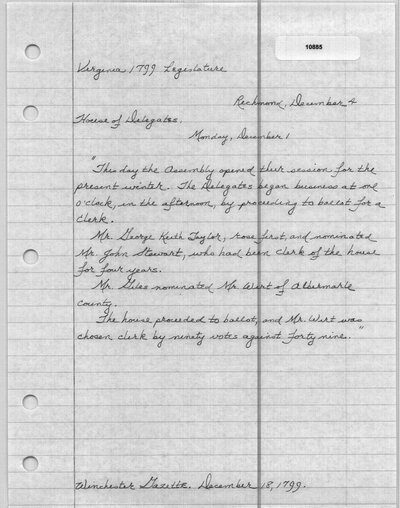 10885
Virginia 1799 Legislature
Richmond, December 4
House of Delegates.
Monday, December 1
"This day the Assembly opened their session for the
present winter. The Delegates began business at one
o'clock, in the afternoon, by proceeding to ballot for a
Clerk.
Mr. George Keith Taylor, rose first, and nominated
Mr. John Stewart, who had been Clerk of the house
for four years.
Mr. Giles nominated Mr. Wirt of Albermarle
county.
The house proceeded to ballot, and Mr. Wirt was
chosen clerk by ninety votes against forty nine."
Winchester Gazette. December 18, 1799.